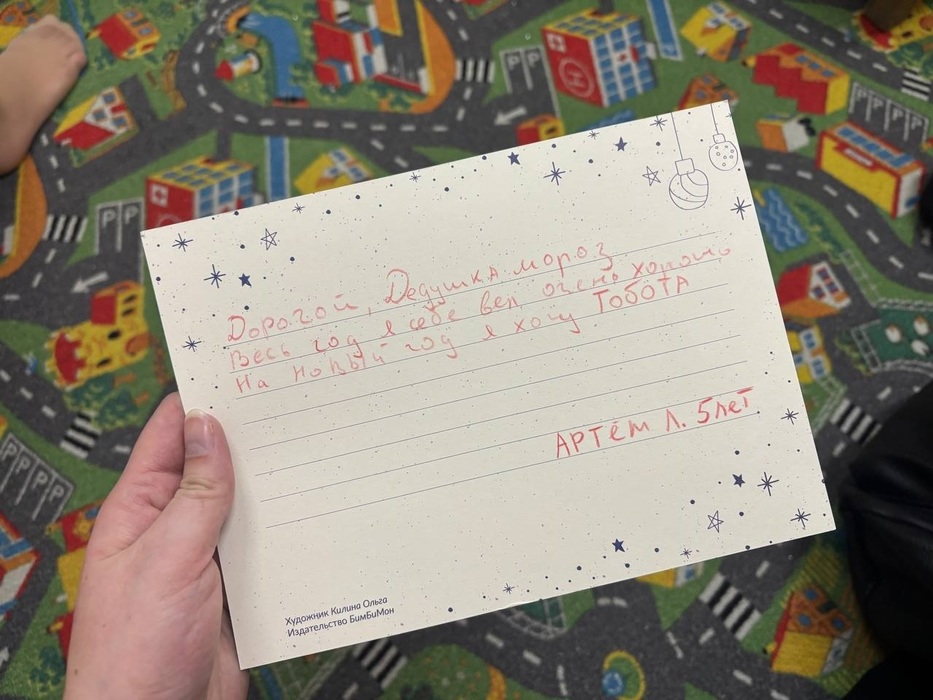 Дорогой, Дедушка мороз
Весь год я себе вел очень хорошо
На новый год я хочу ТОБОТА
АРТЁМ Л. 5 лет
Художник Килина Ольга
Издательство БимБиМон